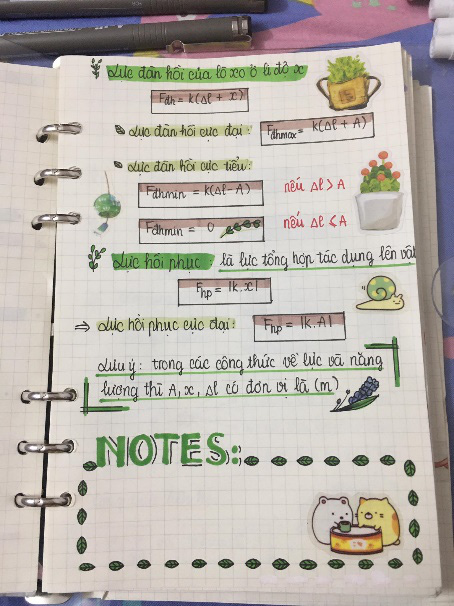 Lực đàn hồi của lò xo ở li độ x
Fđh = k(Δl + x)
Lực đàn hồi cực đại: Fđhmax = k(Δl + A)
Lực đàn hồi cực tiểu:
Fđhmin = k(Δl - A) nếu Δl > A
Fđhmin = 0 nếu Δl ⩽ A
Lực hồi phục là lực tổng hợp tác dụng lên vật
Fhp = |k.x|
⇒ Lực hồi phục cực đại: Fhp = |k.A|
Lưu ý: trong các công thức về lực và năng
lượng thì A, x, Δl có đơn vị là (m)
NOTES: